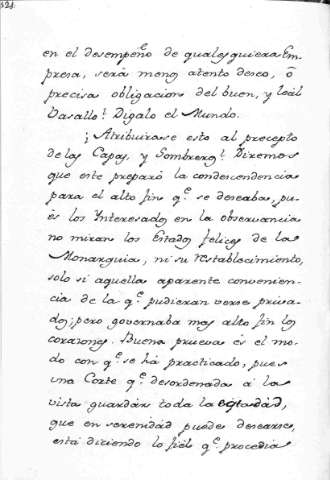 521.
en el desempeño de qualesquiera Em-
presa, será menos atento deseo, ó
precisa obligacion del buen, y leal
Vasallo! Digalo el Mundo.
¡Atribuirase esto al precepto
de las Capas, y Sombreros! Diremos
que este preparó la condescendencia
para el alto fin q.e se deseaba, pu-
és los Ynteresados en la observancia
no miran los Estados felices de la
Monarquia, ni su restablecimiento,
solo si aquella aparente convenien-
cia de la q.e pudieran verse priva-
dos; pero governaba mas alto fin los
corazones. Buena prueva és el mo-
do con q.e se há practicado, pues
una Corte q.e desordenada á la
vista guardán toda la
que en serenidad puede desearse,
está diciendo lo fiel q.e procedia